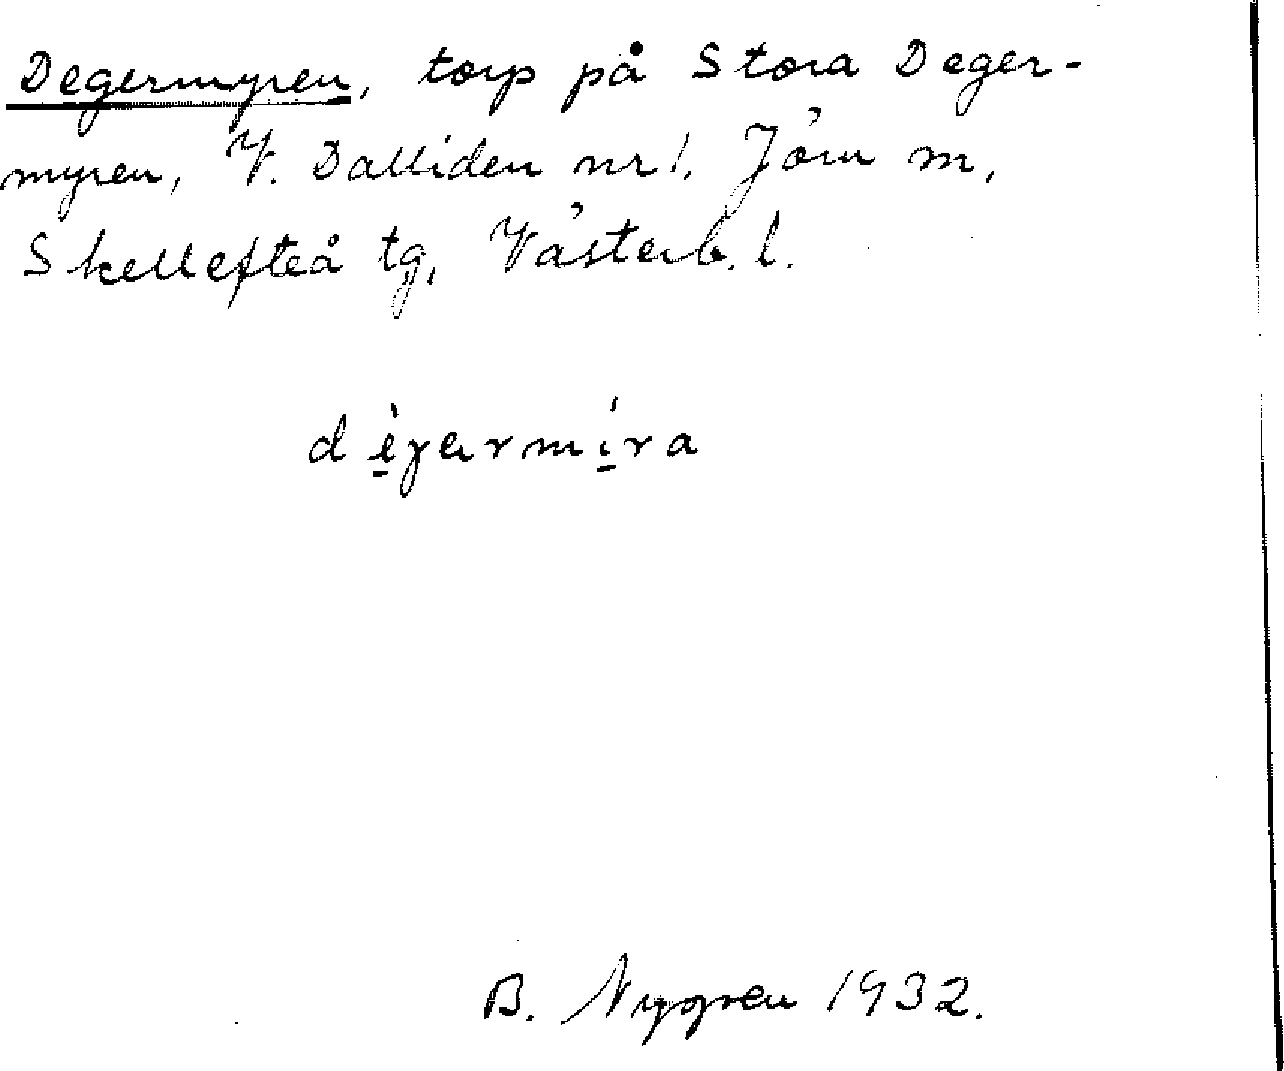 Degermyren, torp på Stora Deger-
myren, V. Dalliden nr 1. Jörn m,
Skellefteå tg, Västerb. l.
B. Nygren 1932.